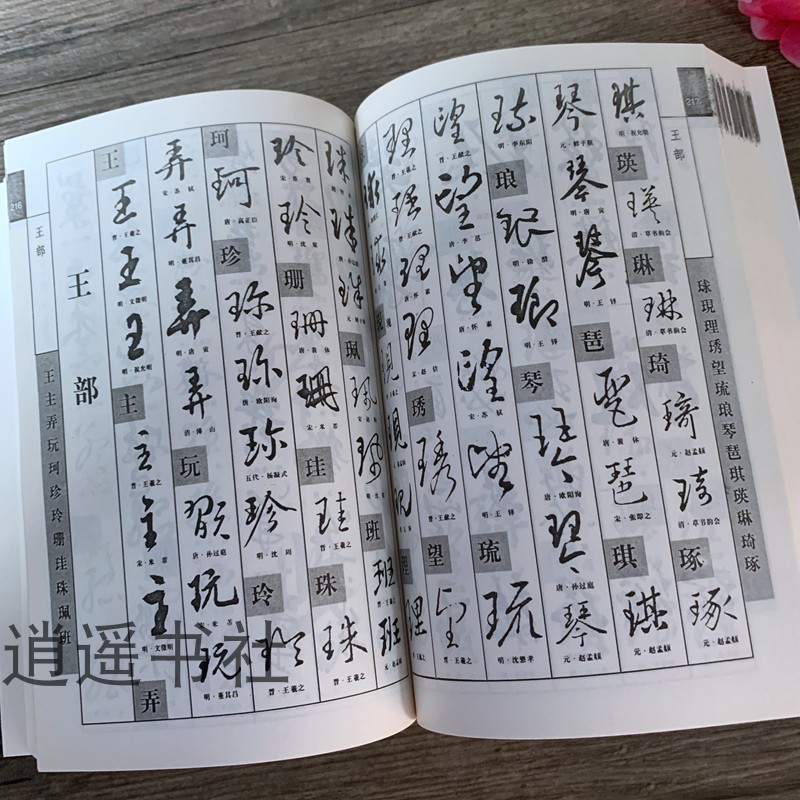 216
王部
王主弄玩珂珍玲珊珪珠珮班
王部
王
晋·王羲之
明·文徵明
明·祝允明
主
晋·王羲之
宋·米芾
明·文徵明
弄
宋·苏轼
明·董其昌
明·唐寅
玩
唐·孙过庭
宋·米芾
明·董其昌
珂
唐·高正臣
珍
晋·王献之
唐·欧阳询
五代·杨凝式
明·沈周
玲
晋·王羲之
珊
宋·米芾
珪
晋·王羲之
珠
晋·王羲之
珮
班
理
晋·王献之
唐·怀素
宋·赵佶
琇
晋·王羲之
望
晋·王羲之
晋·王献之
唐·李邕
唐·怀素
宋·苏轼
明·王铎
琉
明·沈愗孝
明·李东阳
琅
明·徐渭
明·王铎
琴
唐·欧阳询
唐·孙过庭
元·鲜于枢
明·唐寅
明·王铎
琶
唐·裴休
宋·张即之
琪
元·赵孟頫
明·祝允明
瑛
清·草书韵会
琳
清·草书韵会
琦
元·赵孟頫
清·草书韵会
琢
元·赵孟頫
217
王部
球现理琇望琉琅琴琶琪瑛琳琦琢
逍遥书社